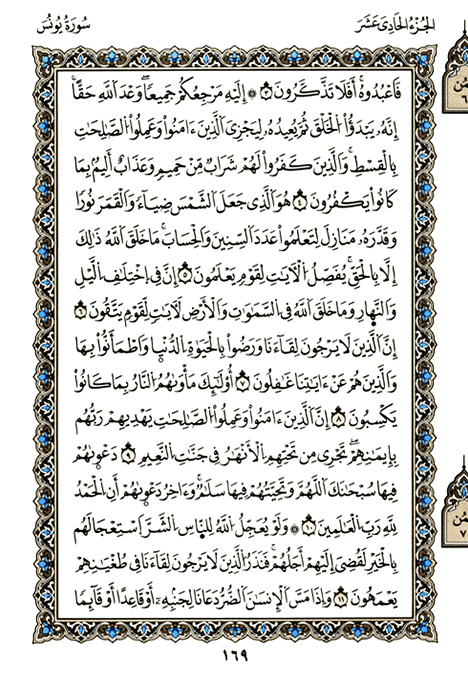 سُورَةُ يُونُسَ
الجُزْءُ الحَادِى عَشَرَ
فَاعْبُدُوهُ أَفَلَا تَذَكَّرُونَ ٣ إِلَيْهِ مَرْجِعُكُمْ جَمِيعًا وَعْدَ اللَّهِ حَقًّا
إِنَّهُ يَبْدَؤُا الْخَلْقَ ثُمَّ يُعِيدُهُ لِيَجْزِىَ الَّذِينَ ءَامَنُوا وَعَمِلُوا الصَّٰلِحَٰتِ
بِالْقِسْطِ وَالَّذِينَ كَفَرُوا لَهُمْ شَرَابٌ مِّنْ حَمِيمٍ وَعَذَابٌ أَلِيمٌ بِمَا
كَانُوا يَكْفُرُونَ ٤ هُوَ الَّذِى جَعَلَ الشَّمْسَ ضِيَآءً وَالْقَمَرَ نُورًا
وَقَدَّرَهُ مَنَازِلَ لِتَعْلَمُوا عَدَدَ السِّنِينَ وَالْحِسَابَ مَا خَلَقَ اللَّهُ ذَٰلِكَ
إِلَّا بِالْحَقِّ يُفَصِّلُ الْآيَٰتِ لِقَوْمٍ يَعْلَمُونَ ٥ إِنَّ فِى اخْتِلَٰفِ الَّيْلِ
وَالنَّهَارِ وَمَا خَلَقَ اللَّهُ فِى السَّمَٰوَٰتِ وَالْأَرْضِ لَآيَٰتٍ لِّقَوْمٍ يَتَّقُونَ ٦
إِنَّ الَّذِينَ لَا يَرْجُونَ لِقَآءَنَا وَرَضُوا بِالْحَيَوٰةِ الدُّنْيَا وَاطْمَأَنُّوا بِهَا
وَالَّذِينَ هُمْ عَنْ ءَايَٰتِنَا غَٰفِلُونَ ٧ أُولَٰٓئِكَ مَأْوَىٰهُمُ النَّارُ بِمَا كَانُوا
يَكْسِبُونَ ٨ إِنَّ الَّذِينَ ءَامَنُوا وَعَمِلُوا الصَّٰلِحَٰتِ يَهْدِيهِمْ رَبُّهُم
بِإِيمَٰنِهِمْ تَجْرِى مِن تَحْتِهِمُ الْأَنْهَٰرُ فِى جَنَّٰتِ النَّعِيمِ ٩ دَعْوَىٰهُمْ
فِيهَا سُبْحَٰنَكَ اللَّهُمَّ وَتَحِيَّتُهُمْ فِيهَا سَلَٰمٌ وَءَاخِرُ دَعْوَىٰهُمْ أَنِ الْحَمْدُ
لِلَّهِ رَبِّ الْعَٰلَمِينَ ١٠ وَلَوْ يُعَجِّلُ اللَّهُ لِلنَّاسِ الشَّرَّ اسْتِعْجَالَهُم
بِالْخَيْرِ لَقُضِىَ إِلَيْهِمْ أَجَلُهُمْ فَنَذَرُ الَّذِينَ لَا يَرْجُونَ لِقَآءَنَا فِى طُغْيَٰنِهِمْ
يَعْمَهُونَ ١١ وَإِذَا مَسَّ الْإِنسَٰنَ الضُّرُّ دَعَانَا لِجَنبِهِ أَوْ قَاعِدًا أَوْ قَآئِمًا
١٦٩